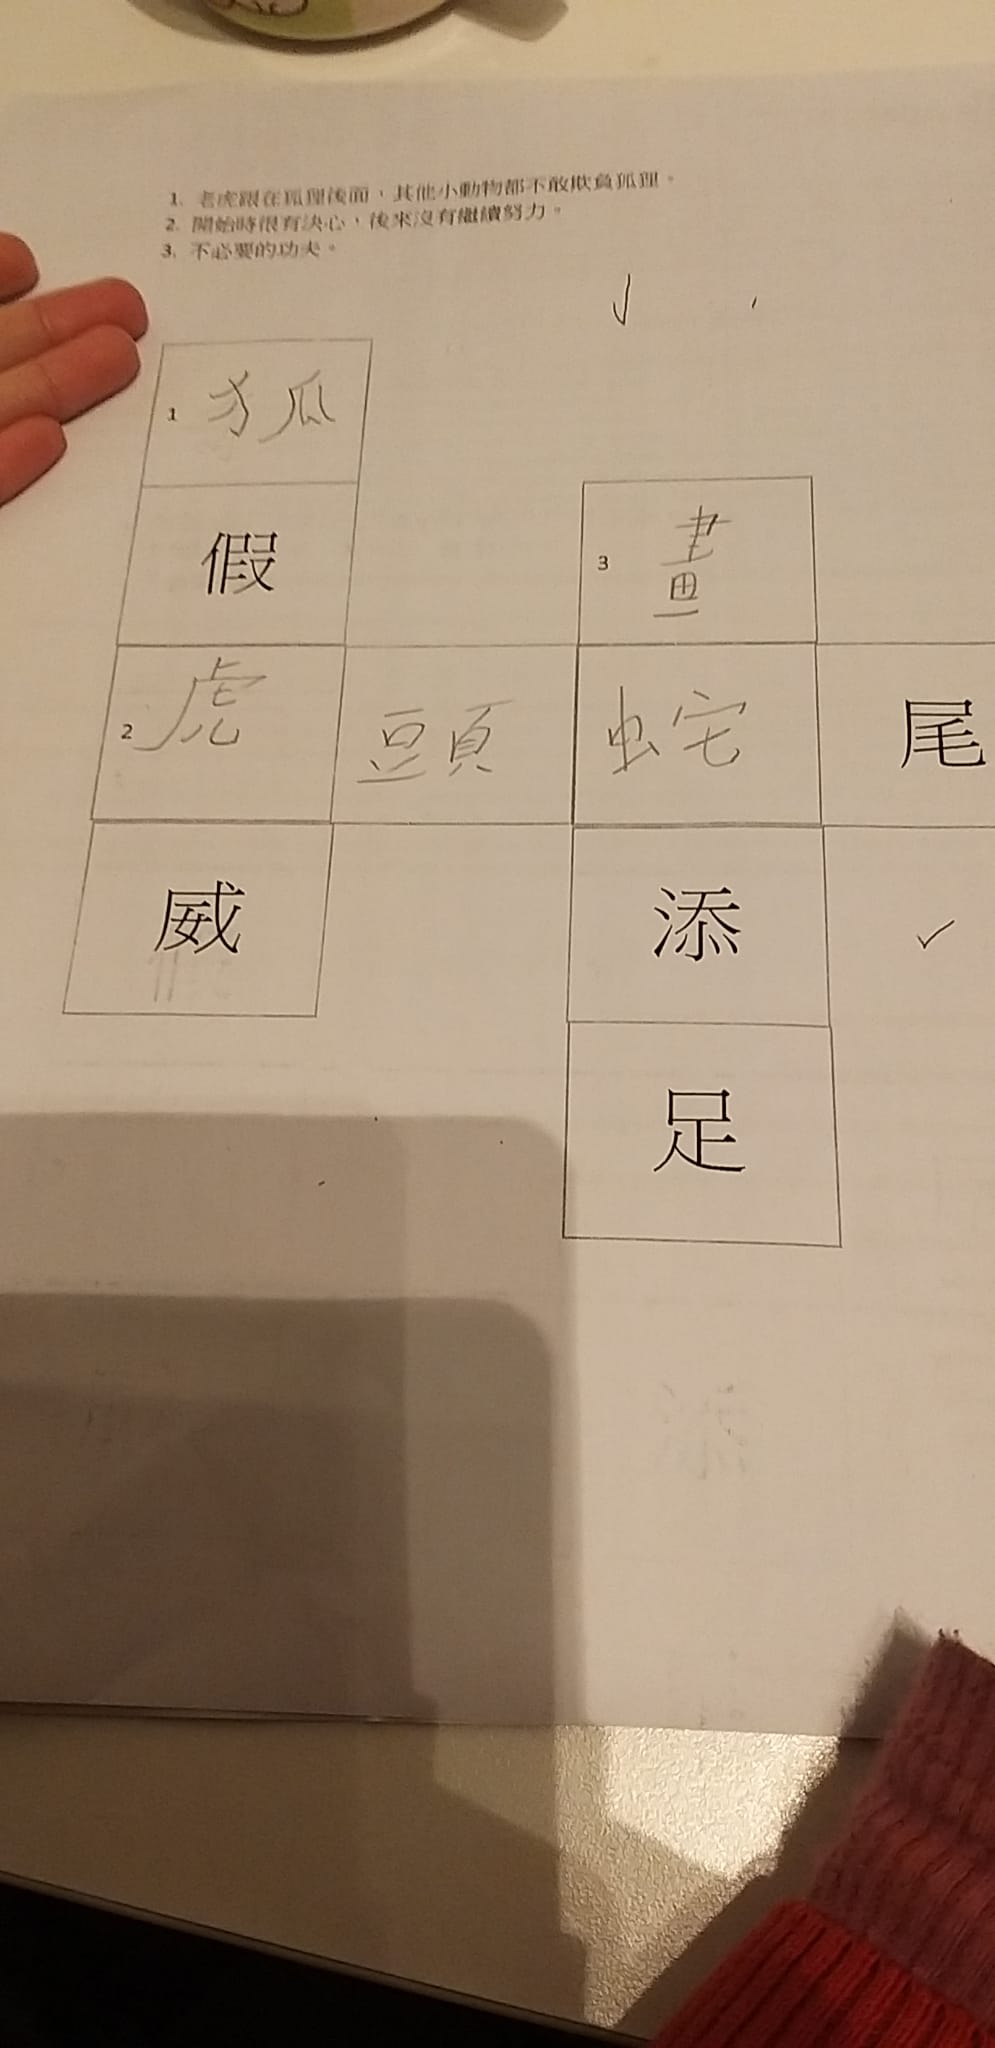 1. 老虎跟在狐狸後面，其他小動物都不敢欺負狐狸。
2. 開始時很有決心，後來沒有繼續努力。
3. 不必要的功夫。
1 狐
假
3 畫
2 虎 頭 蛇 尾
威
添
足